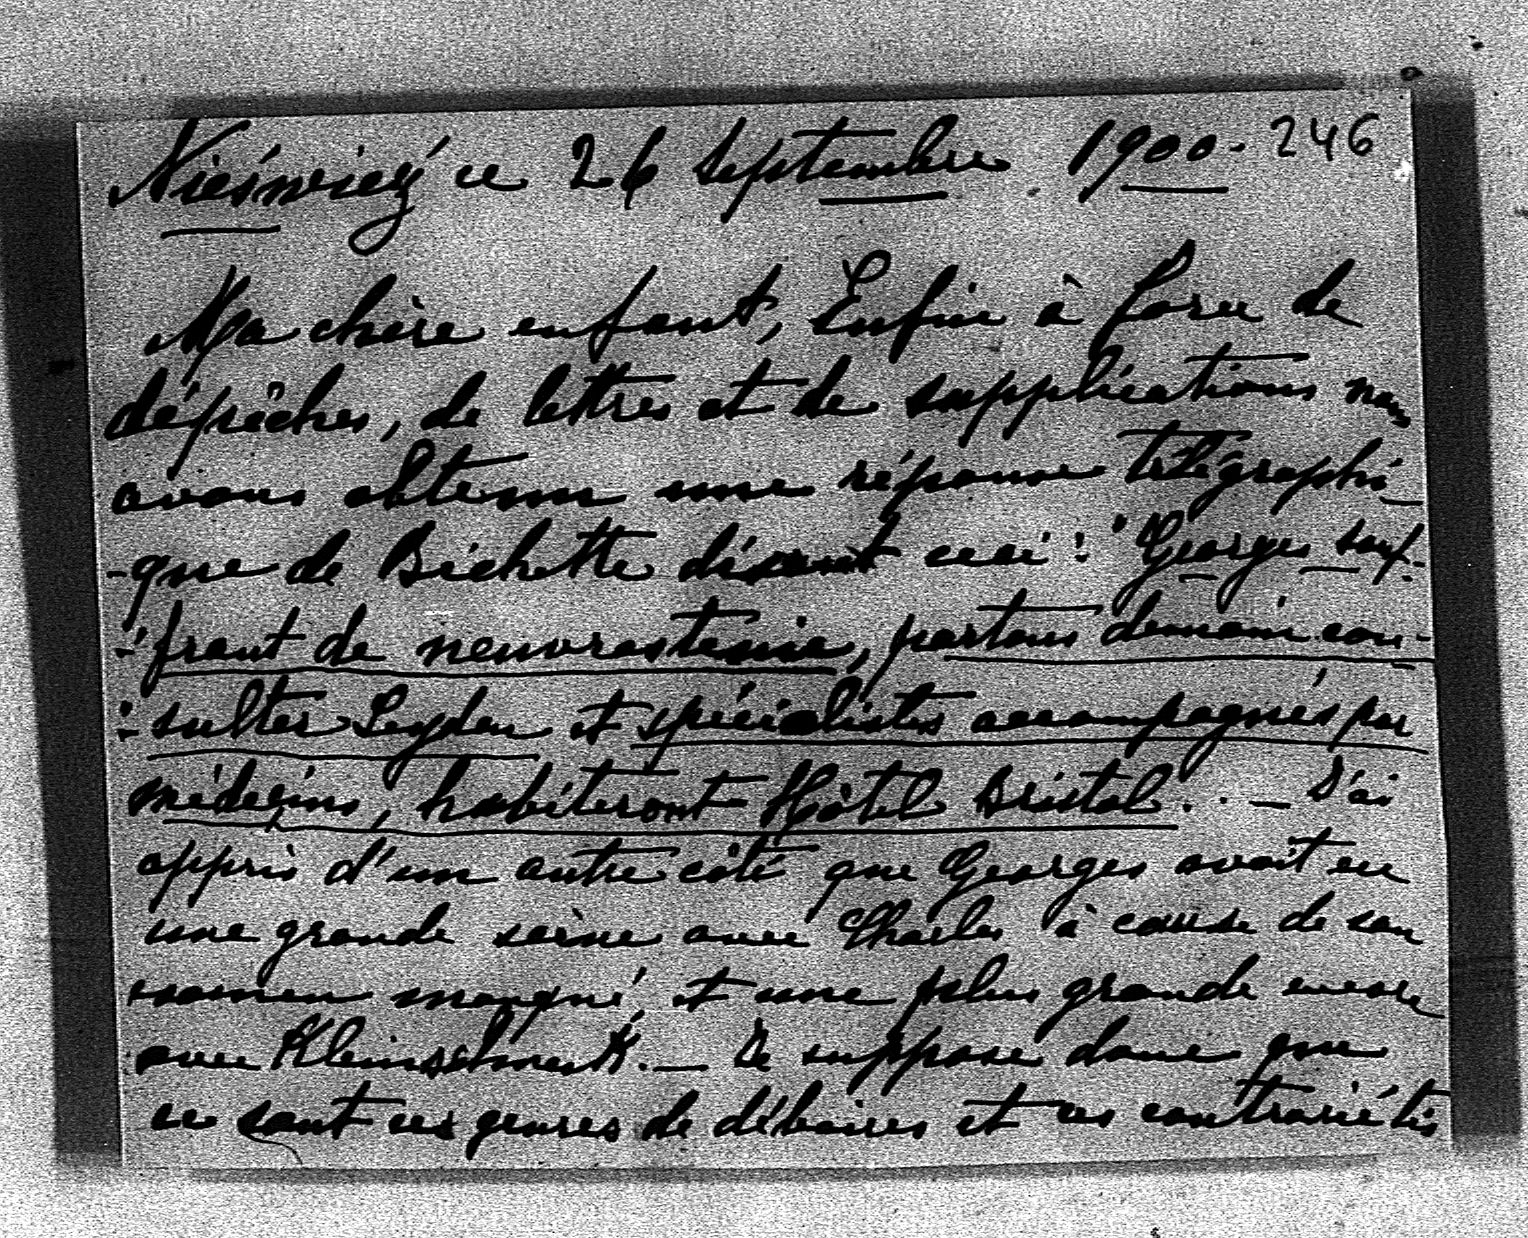 Nieświeź ce 26 Septembre 1900. 246
Ma chère enfant, Enfin à force de
dépêches, de lettres et de supplications nous
avons obtenu une réponse télégraphi-
-que de Bichette disant ceci : "Georges souf-
-frant de neuvrastenie, partons demain con-
-sulter Leyden et spécialistes accompagnés par
médeçins, habiteront Hôtel Bristol. . . — J'ai
appris d'un autre côté que Georges avait eu
une grande scène avec Charles à cause de son
examen manqué et une plus grande encore
avec . — Je suppose donc que
ce sont ces genres de déboires et ces contrariétés